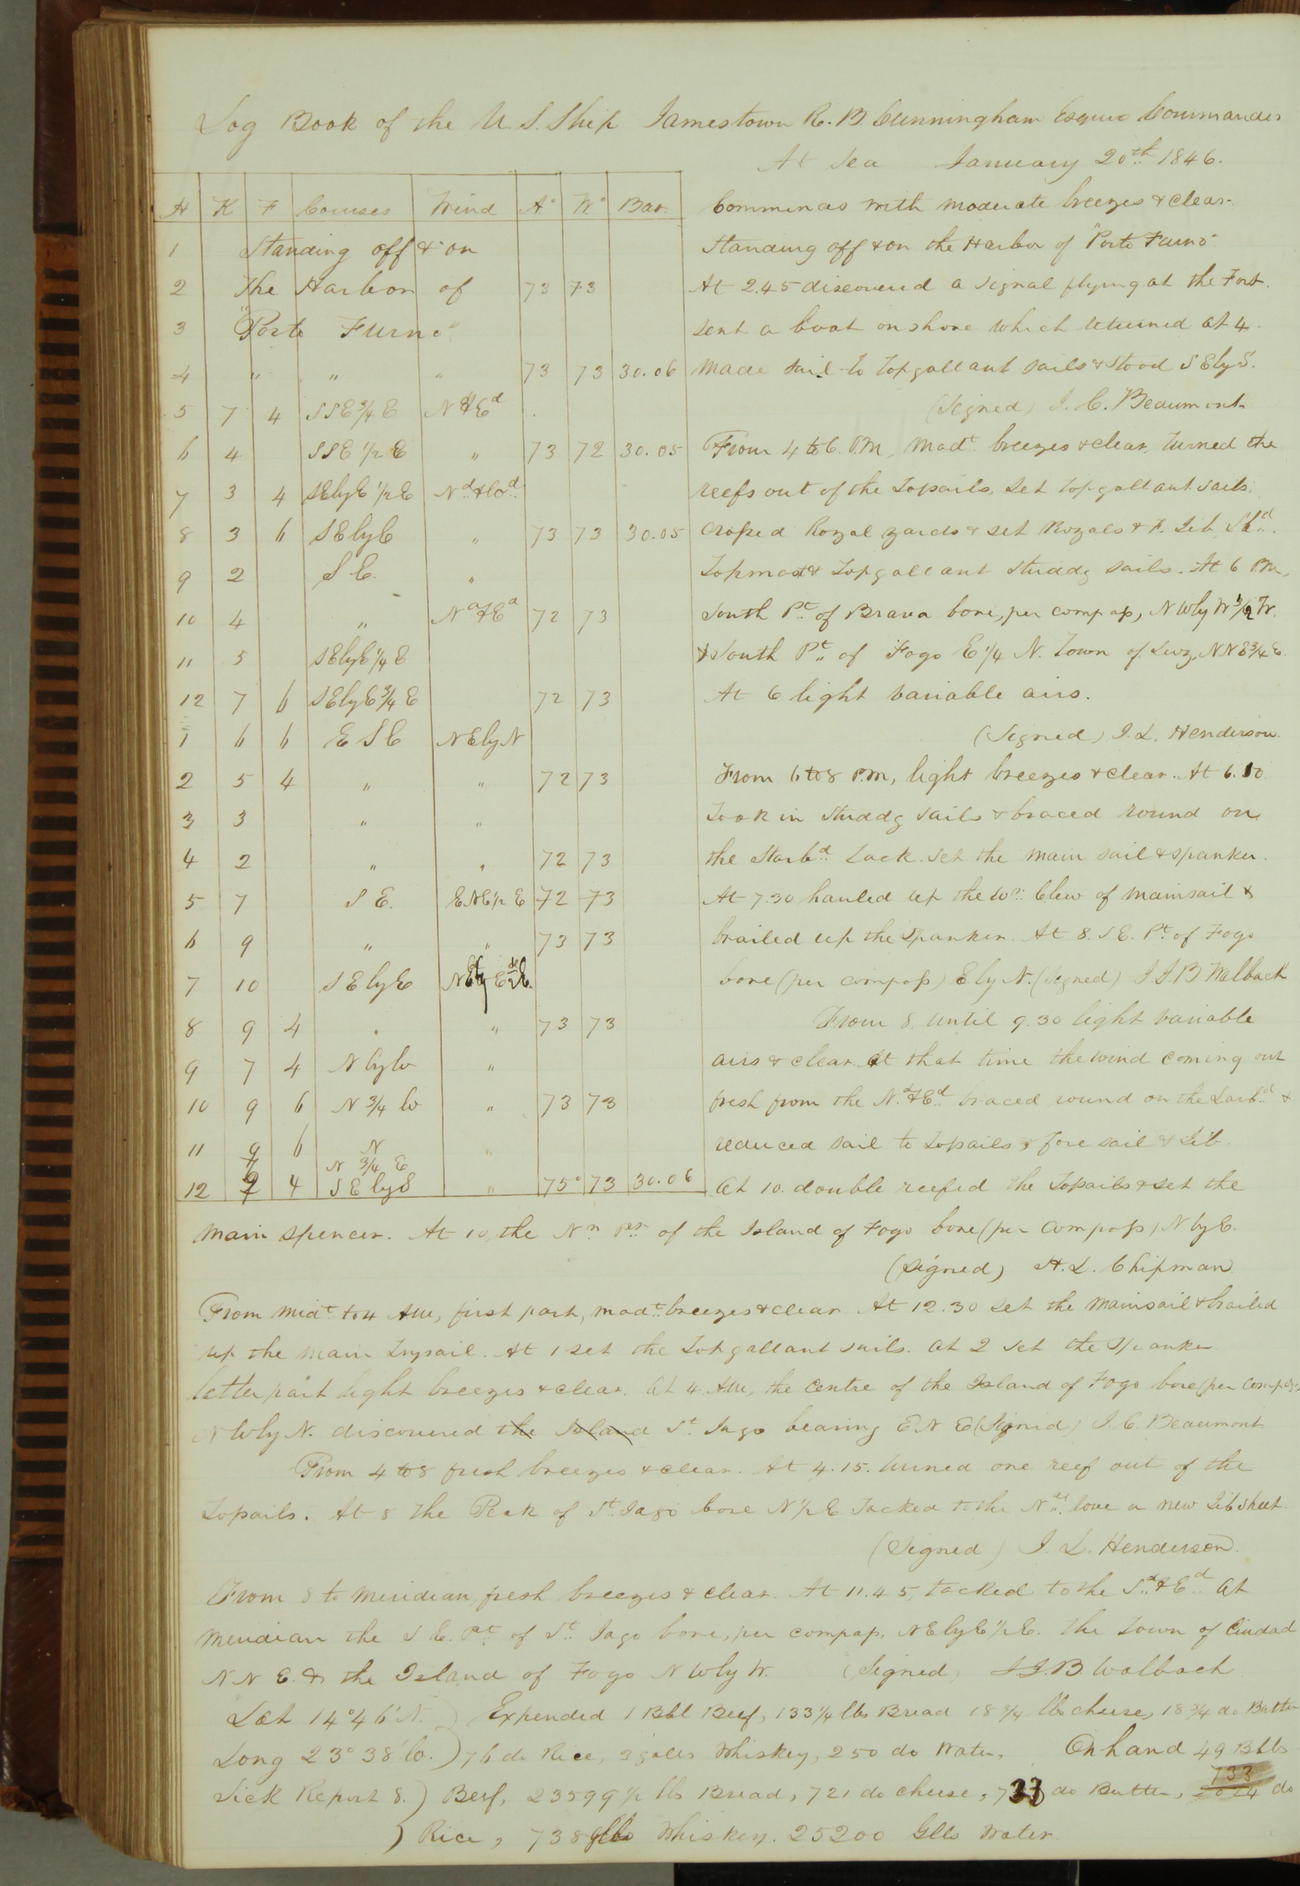 Log Book of the U.S. Ship Jamestown R. B. Cunningham Esquire Commander
At Sea January 20th 1846.
H K F Courses Wind A° W° Bar.
1 Standing off & on
2 The Harbor of 73 73
3 "Porto Furno"
4 " " " 73 73 30.06
5 7 4 SSE 3/4 E Nd&Ed
6 4 SSE 1/2 E " 73 72 30.05
7 3 4 SEbyE 1/2 E Nd&Wd
8 3 6 SEbyE " 73 73 30.05
9 2 SE. "
10 4 " Nd&Ed 72 73
11 5 SEbyE 1/4 E
12 7 6 SEbyE 3/4 E 72 73
1 6 6 ESE NEbyN
2 5 4 " " 72 73
3 3 " "
4 2 " " 72 73
5 7 SE. ENE 1/2 E 72 73
6 9 " " 73 73
7 10 SEbyE
8 9 4 " " 73 73
9 7 4 NbyW "
10 9 6 N 3/4 W " 73 73
11 9 6 N "
N 3/4 E
12 9 4 SEbyS " 75° 73 30.06
Commences with moderate breezes & clear.
Standing off & on the Harbor of "Porto Furno"
At 2.45 discovered a signal flying at the Fort.
sent a boat on shore which returned at 4.
Made sail to Topgallant sails & stood SEbyS.
(Signed) J. C. Beaumont
From 4 to 6. P.M, Modt breezes & clear, turned the
reefs out of the Topsails, set topgallant sails,
crossed Royal yards & set Royals & F. Jib, Stbd.
Topmast & Topgallant studdg sails. At 6 P.M,
South Pt of Brava bore, per compass, NWbyW 1/2 W.
& South Pt of Fogo E 1/4 N. Town of NNE 3/4 E.
At 6 light variable airs.
(Signed) J. L. Henderson
From 6 to 8 P.M, light breezes & clear. At 6.10
Took in studdg sails & braced round on
the Starbd Tack. Set the main sail & spanker.
At 7.30 hauled up the Wr Clew of mainsail &
brailed up the spanker. At 8. SE. Pt of Fogo
bore (per compass) EbyN. (Signed) J. J. B Walbach
From 8 until 9.30 light variable
airs & clear. At that time the wind coming out
fresh from the Nd&Ed braced round on the Larbd &
reduced sail to Topsails, Fore sail & Jib
At 10. double reefed the Topsails & set the
Main spencer. At 10, the Nn Pt of the Island of Fogo bore (per compass) NbyE.
(Signed) H. L. Chipman
From Midt to 4 AM, first part, modt breezes & clear At 12.30 set the Mainsail & brailed
up the main Trysail. At 1 set the Topgallant sails. At 2 set the Spanker
latter part light breezes & clear. At 4. AM, the centre of the Island of Fogo bore (per compass
NWbyN. discovered the Island St Jago bearing ENE (Signed) J. C. Beaumont
From 4 to 8 fresh breezes & clear. At 4.15. turned one reef out of the
Topsails. At 8 the Peak of St Jago bore N 1/2 E Tacked to the Nd. bove a new Jib sheet.
(Signed) J. L. Henderson.
From 8 to Meridian, fresh breezes & clear. At 11.45, tacked to the Sd&Ed At
Meridian the SE. Pt of St Jago bore, per compass, NEbyE 1/2 E. the Town of Ciudad
NNE. & the Island of Fogo NWbyW. (Signed) J. J. B. Walbach
Lat 14°46'N. ) Expended 1 Bbl Beef, 133 1/4 lbs Bread 18 3/4 lbs cheese, 18 3/4 do Butter
Long 23°38'W. ) 76 do Rice, 3 galls Whiskey, 250 do Water, On hand 49 Bbls
Sick Report 8. ) Beef, 23599 1/2 lbs Bread, 721 do cheese, 733 do Butter, 733 do
) Rice, 738 glls Whiskey. 25200 Glls Water